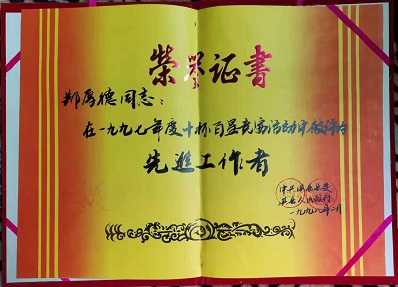 榮誉证書
郑厚德同志：
在一九九七年度十杯百盏竞赛活动中被评为
先進工作者
中共县委
县人民政府
一九九八年二月